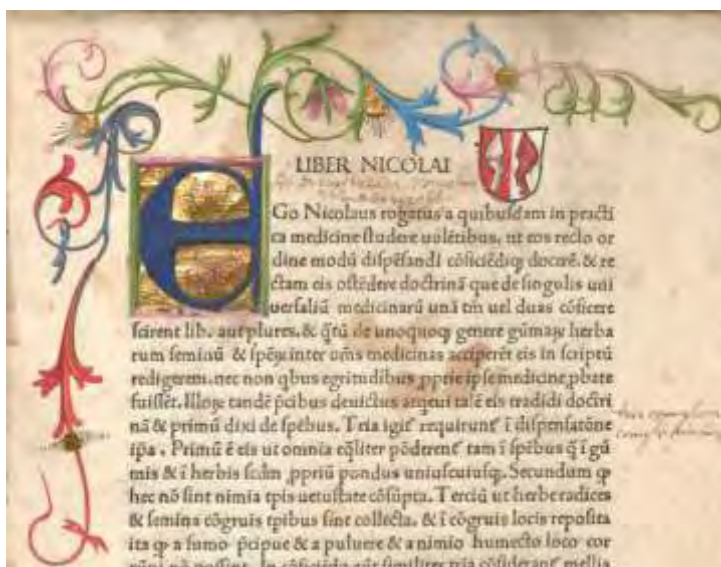 LIBER NICOLAI
EGo Nicolaus rogatus a quibusdam in practi
ca medicine studere uolētibus, ut eos recto or
dine modū dispēsandi cōficiēdiq; docerē. & re
ctam eis ostēdere doctrinā que de singulis uni
uersaliū medicinarū unā tm̄ uel duas cōficere
scirent lib. aut plures. & q̄tū de unoquoq; genere gūmaꝝ herba
rum seminū & spēꝝ inter oms̄ medicinas acciperēt eis in scriptū
redigerem. nec non qbus egritudibus ꝓprie ipse medicine ꝓbate
fuissēt. Illoꝝ tandē p̄cibus deuictus atqeui talē eis tradidi doctri
nā & primū dixi de spēbus. Tria igit̄ requirunt̄ ī dispensatōne
ipa. Primū ē eis ut omnia eq̄liter pōderent̄ tam ī spēbus q̄ ī gū
mis & ī herbis scd̄m ꝓpriū pondus uniuscuiusq;. Secundum ꝙ
hec nō sint nimia tp̄is uetustate cōsūpta. Terciū ut herbe radices
& semina cōgruis tpibus sint collecta. & ī cōgruis locis reposita
ita ꝙ a fumo p̄cipue & a puluere & a nimio humecto loco cor